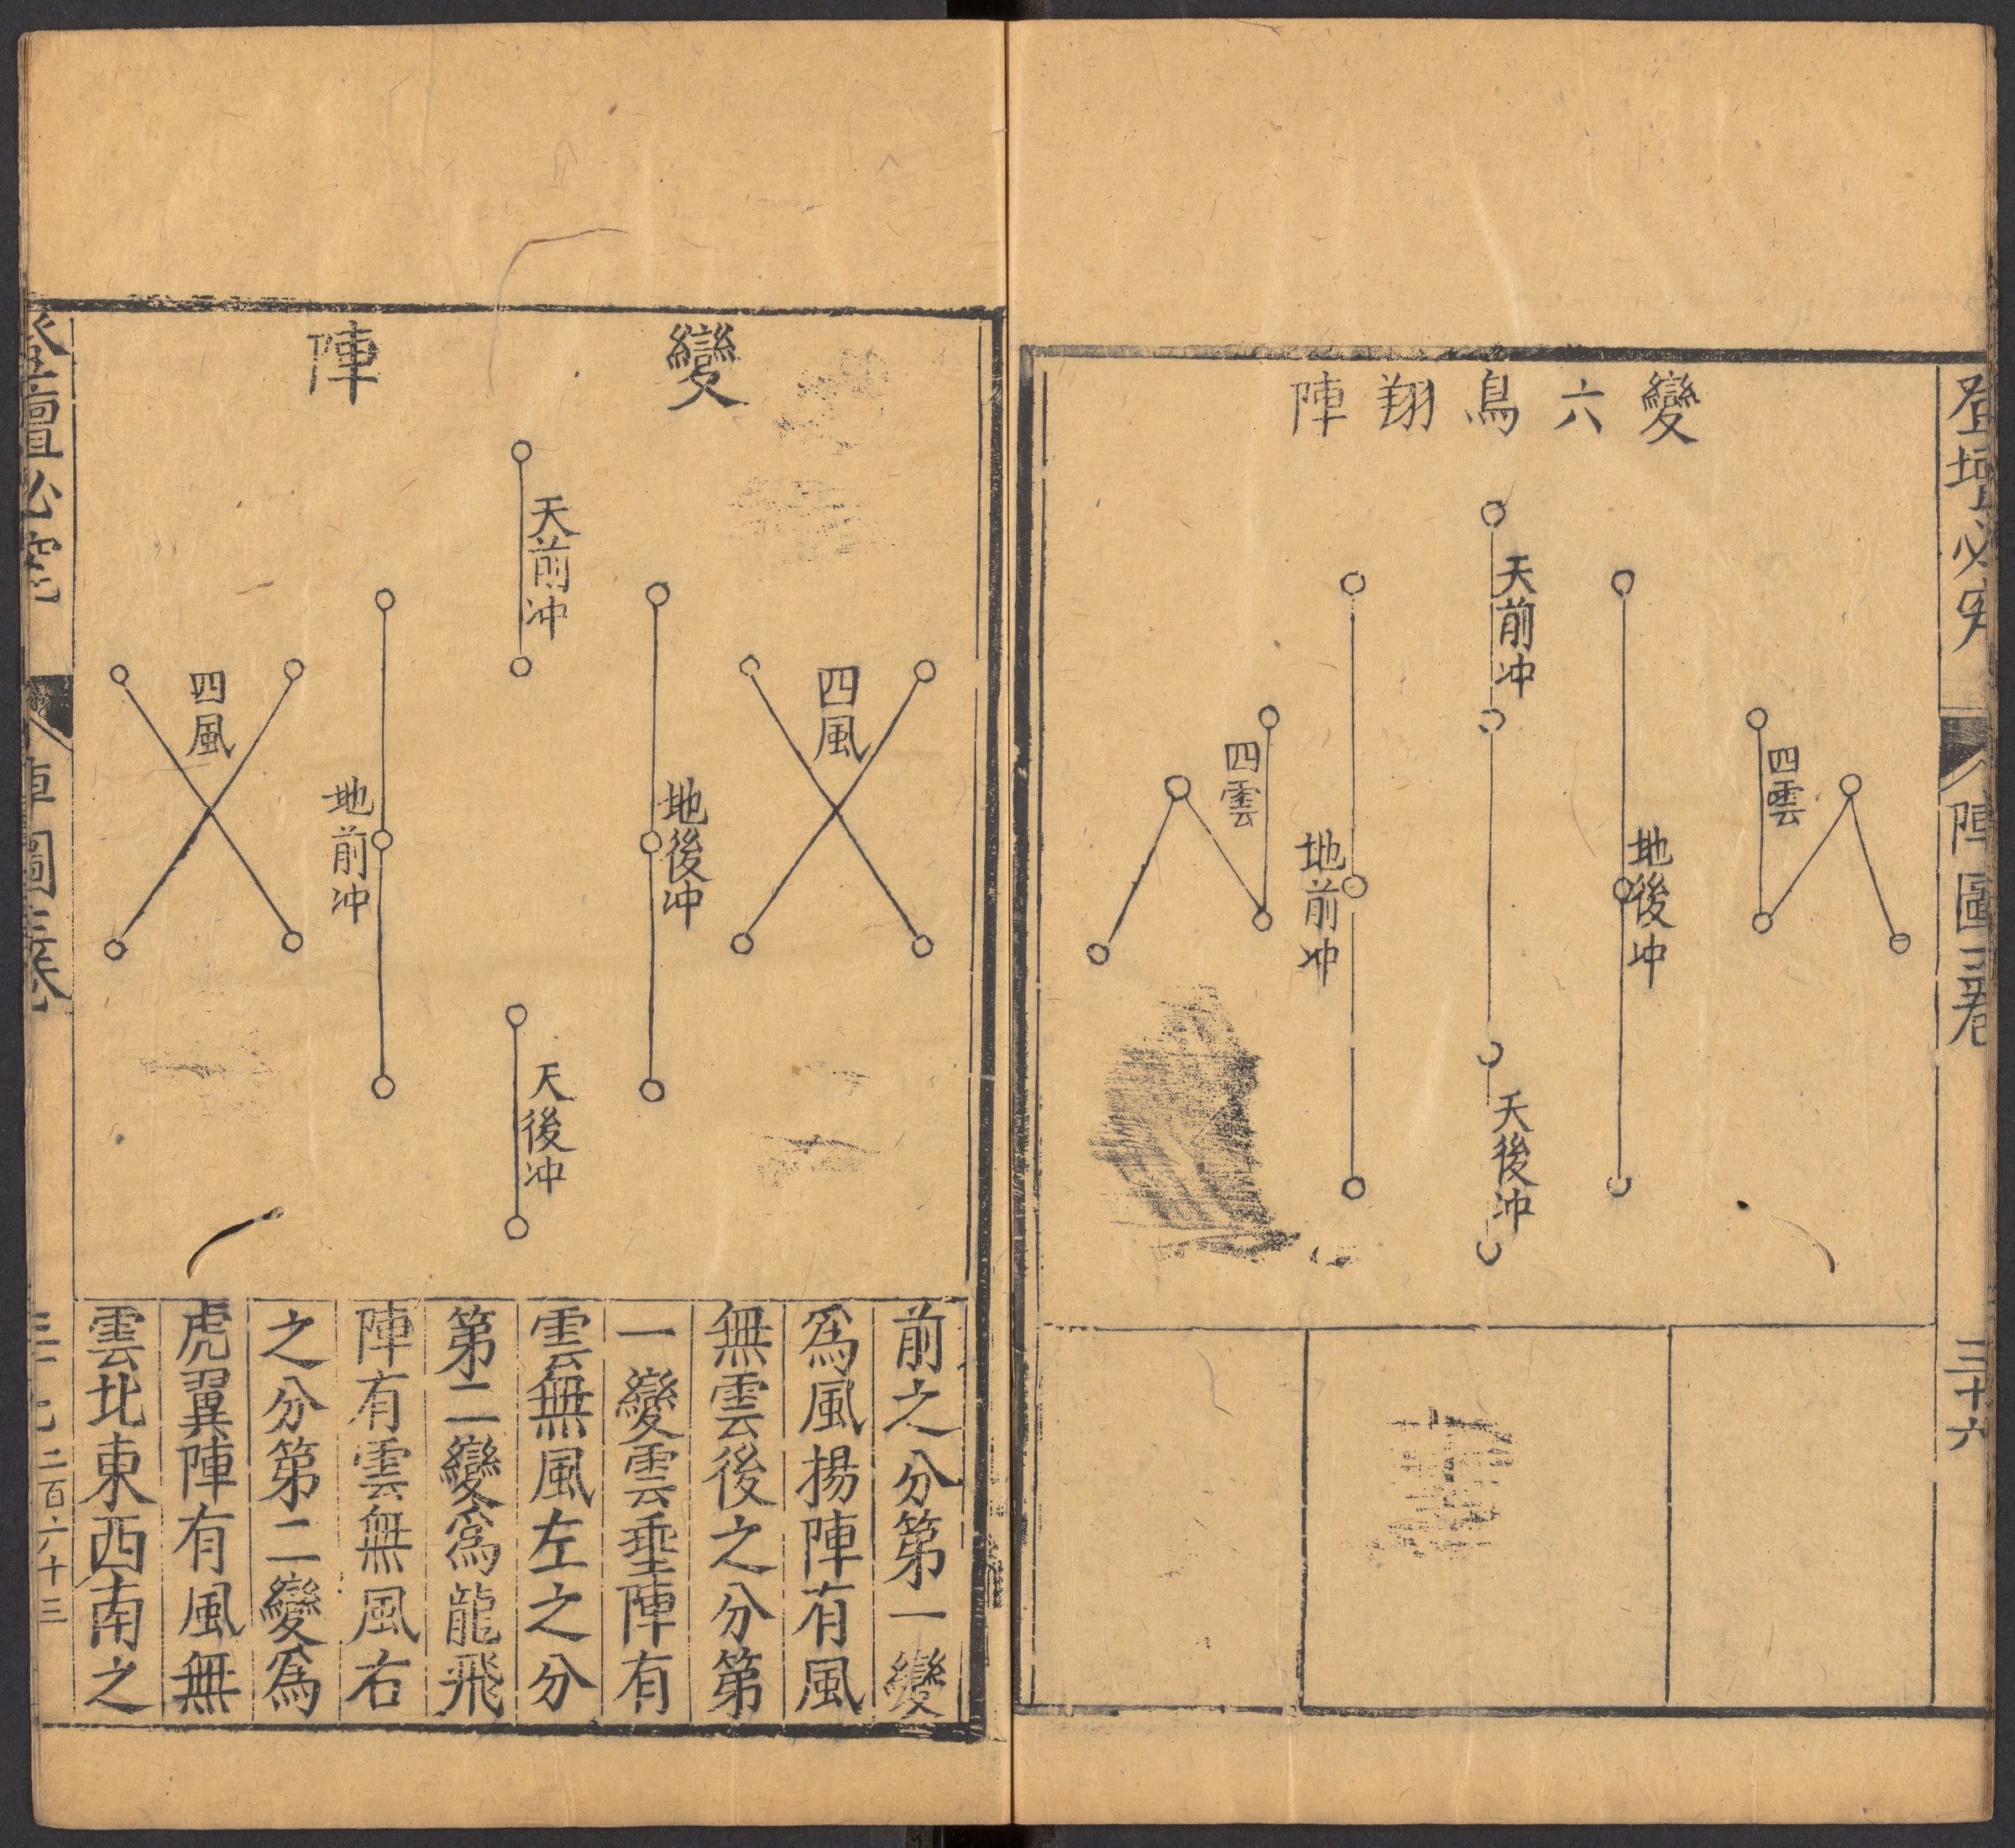 登壇必究
陣圖三卷
三十六
變六鳥翔陣
天前冲
四雲
地後冲
地前冲
四雲
天後冲
變陣
天前冲
四風
地後冲
地前冲
四風
天後冲
前之分第一變
爲風揚陣有風
無雲後之分第
一變雲垂陣有
雲無風左之分
第二變爲龍飛
陣有雲無風右
之分第二變爲
虎翼陣有風無
雲北東西南之
登壇必究
陣圖三卷
二百六十三